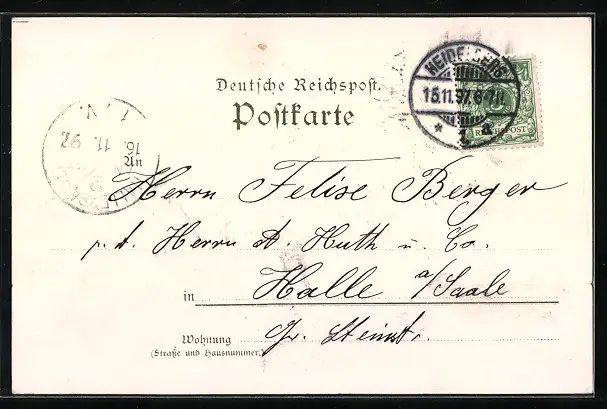 Deutsche Reichspost.
Postkarte
HEIDELBERG
15.11.97.6-7N.
* 1 a
REICHSPOST
16. 11. 97
An
Herrn Felise Berger
p. A. Herrn A. Huth u. Co.
in Halle a/Saale
Wohnung Gr. Steinstr.
(Straße und Hausnummer.)